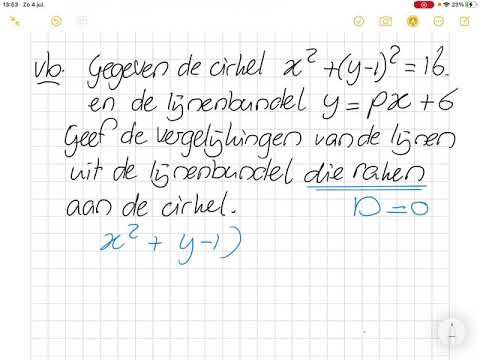 13:53 Zo 4 jul.
23%
vb. Gegeven de cirkel x² + (y-1)² = 16.
en de lijnenbundel y = px + 6
Geef de vergelijkingen van de lijnen
uit de lijnenbundel die raken
aan de cirkel. D = 0
x² + y-1)